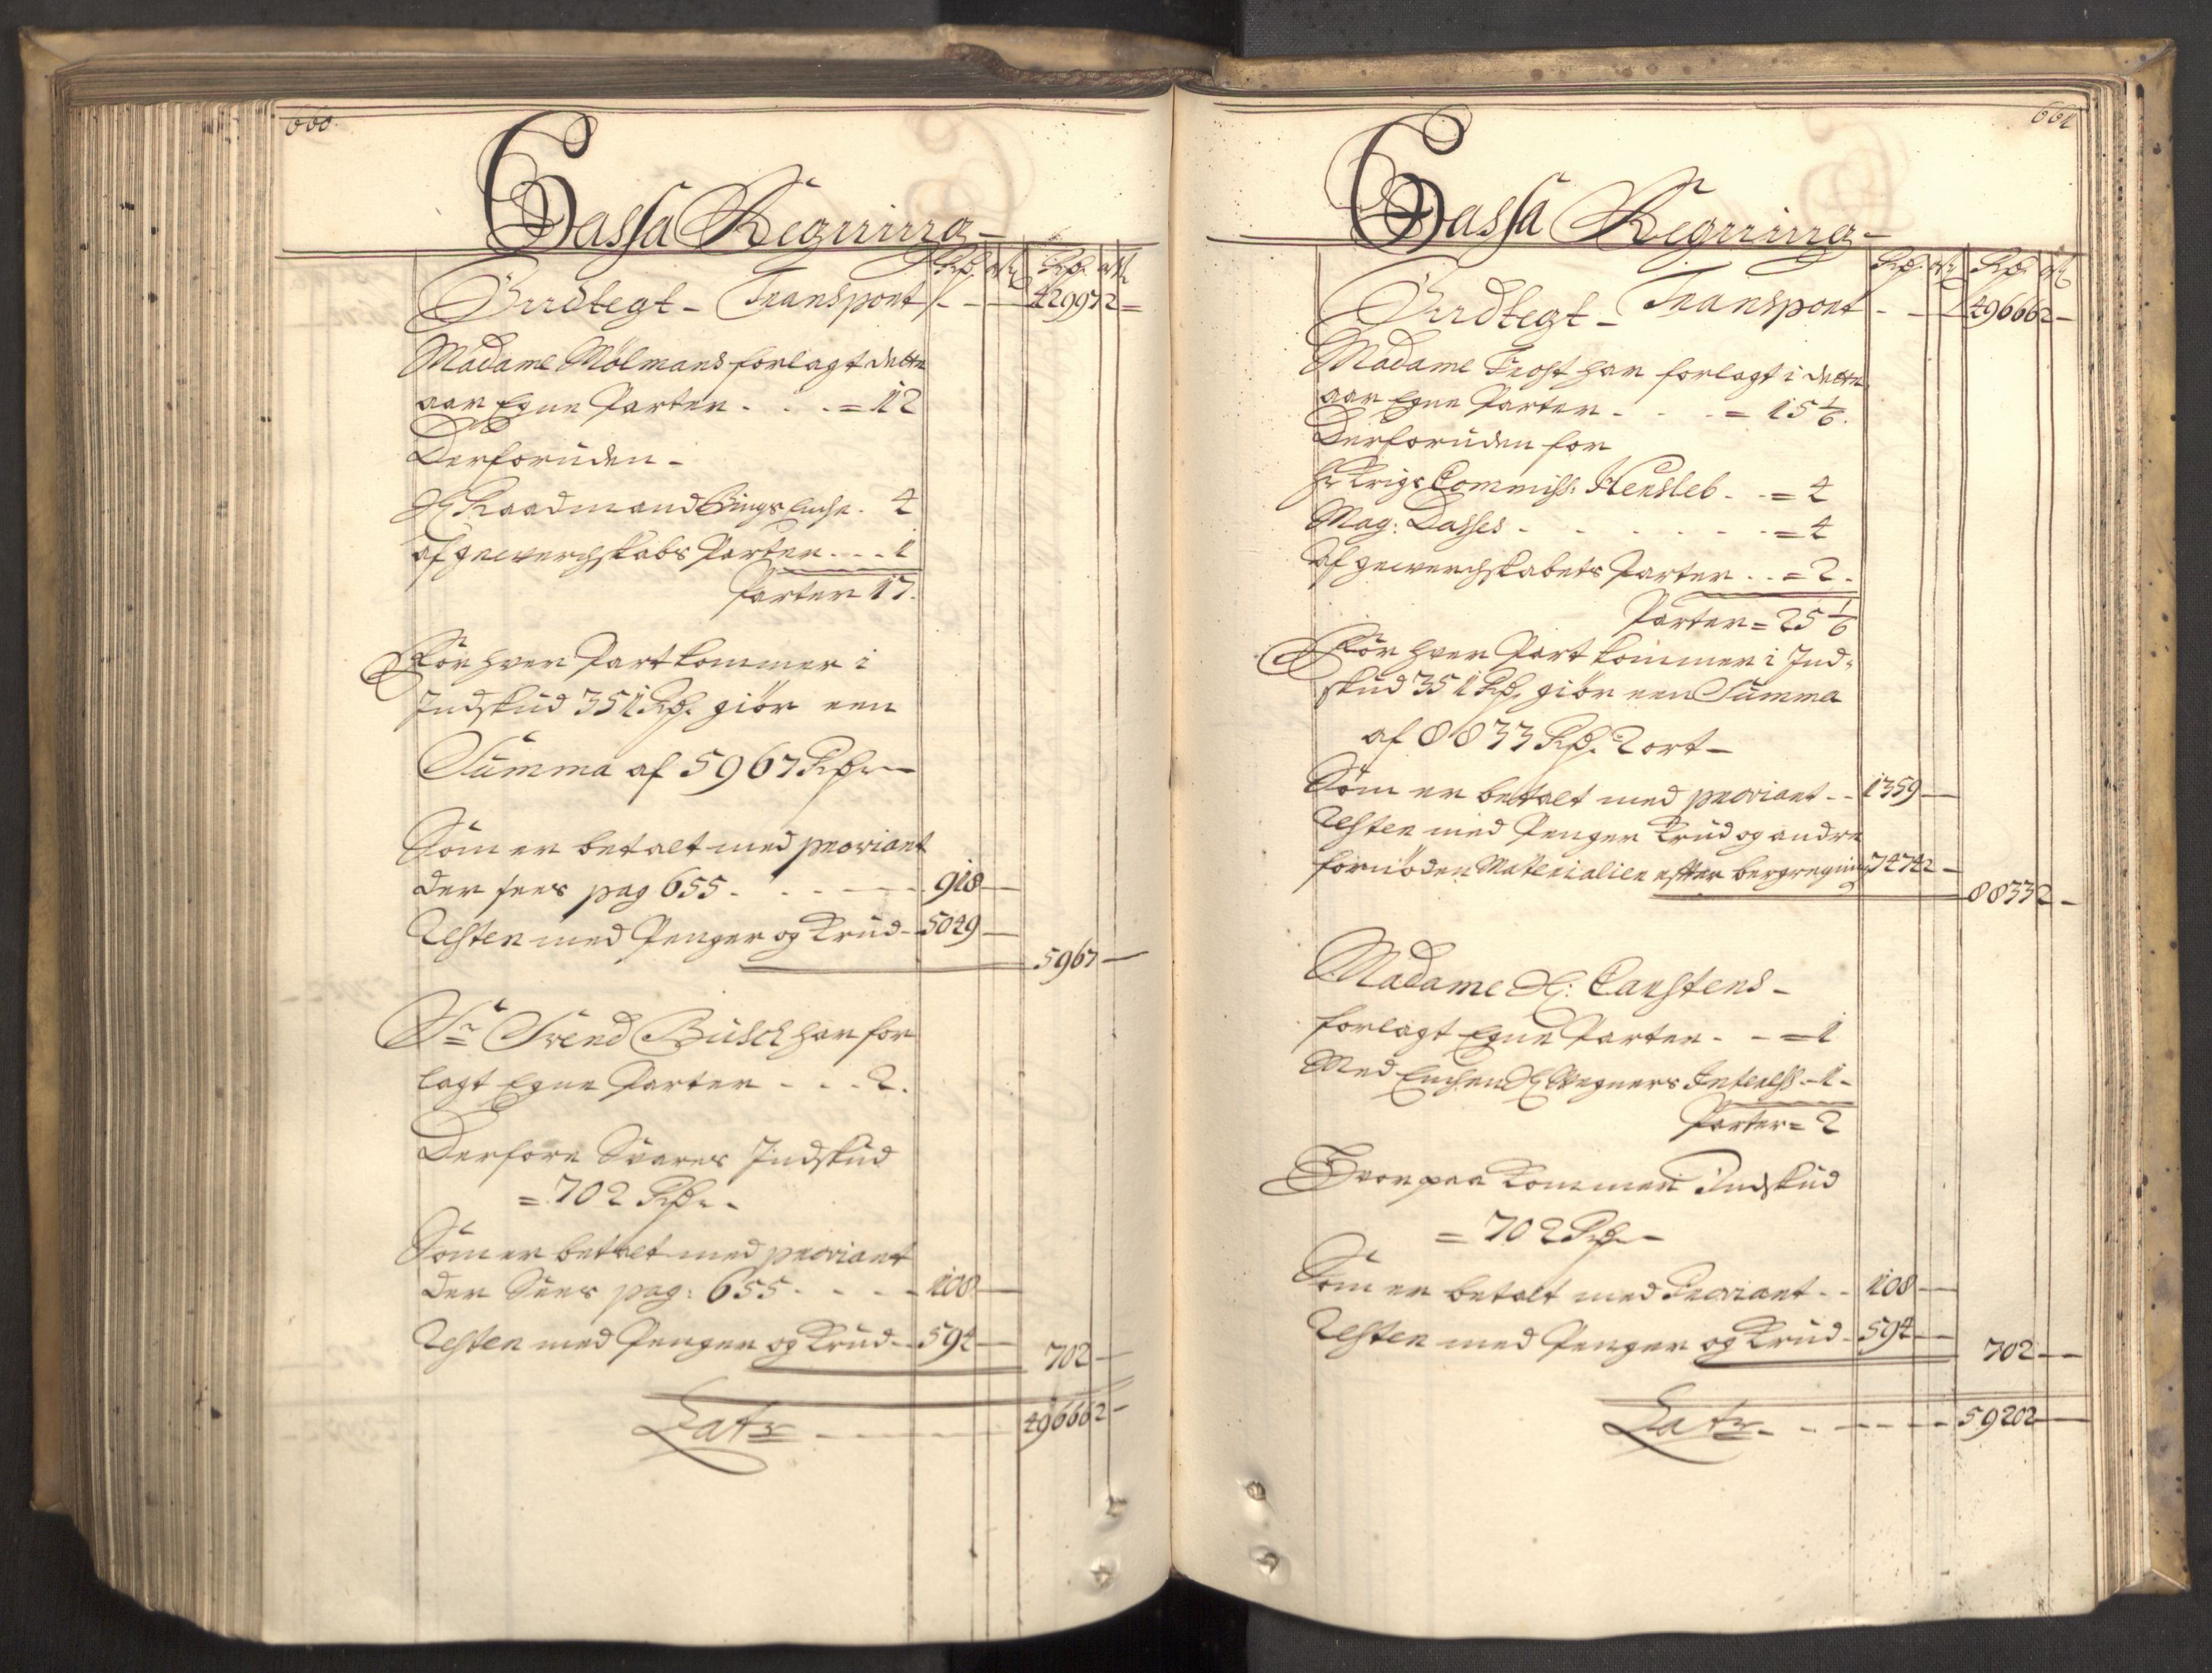 660.
Cassa Regning
Rdr. ort Rdr. ort
Indtegt - Transport - - - 42997 2 -
Madame Mölmans forlagt dette
aar Egne Parter . . . = 12
Derforuden -
H Raadmand Bings Enche . 4
af gewerchskabs Parter . . . 1
Parter 17.
För hver Part kommer i
Indskud 351 Rdr. giör een
Summa af 5967 Rdr. -
Som er betalt med proviant
der sees pag 655 - . . - - 918 -
Resten med Penger og Krud - 5049 -
5967 -
Sr. Svend Busch har for
lagt Egne Parter - . . 2.
Derfore Svares Indskud
= 702 Rdr. -
Som er betalt med proviant
der Sees pag: 655 - . . - - 108 -
Resten med Penger og Krud - 594 -
702 -
Latr - - - - 49666 2 -
661
Cassa Regning
Rdr. ort Rdr. ort
Indtegt - Transport - - - 49666 2 -
Madame Trost har forlagt i dette
aar Egne Parter . . . = 15 1/6.
Derforuden for
Hr Krigs Commiss: Hensleb . . = 4
Mag: Dasses - . . . . . = 4
af gewerchskabets Parter . . = 2.
Parter = 25 1/6
För hver Part kommer i Ind-
skud 351 Rdr. giör een Summa
af 8833 Rdr. 2 ort -
Som er betalt med proviant - - 1359 -
Resten med Penger Krud og andre
fornöden Materialier efter beregning 7474 2 -
8833 2 -
Madame H: Carstens -
forlagt Egne Parter . - = 1
Med Enchen H Wegners Interess - 1 -
Parter = 2
Hvorpaa kommer Indskud
= 702 Rdr. -
Som er betalt med Proviant . - 108 -
Resten med Penger og Krud - 594 -
702 - -
Latr - . - - - - 59202 -